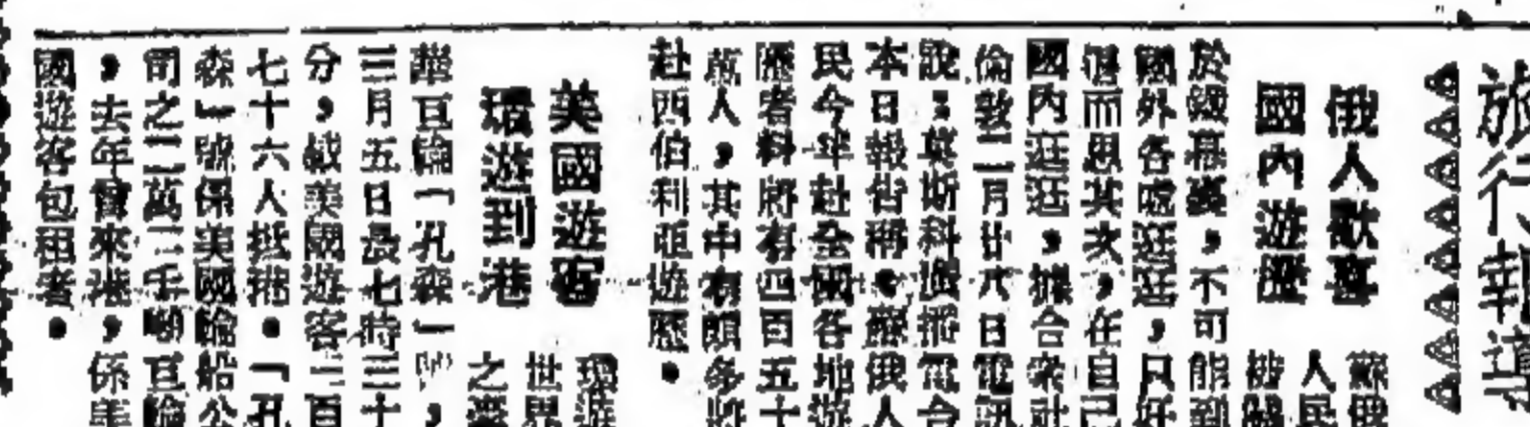 旅行報導
俄人歡喜
國內遊歷
蘇俄
人民
被
於鐵幕裏，不可能到
國外各處逛逛，只好
退而思其次，在自己
國內逛逛，據合衆社
倫敦二月廿八日電訊
說：莫斯科廣播電台
本日報告稱。蘇俄人
民今年赴全國各地遊
歷者料將有四百五十
萬人，其中有頗多將
赴西伯利亞遊歷。
美國遊客
環遊到港
環遊
世界
之豪
華巨輪「孔森」號，
三月五日晨七時三十
分，載美國遊客三百
七十六人抵港。「孔
森」號係美國輪船公
司之二萬二千噸巨輪
，去年曾來港，係美
國遊客包租者。